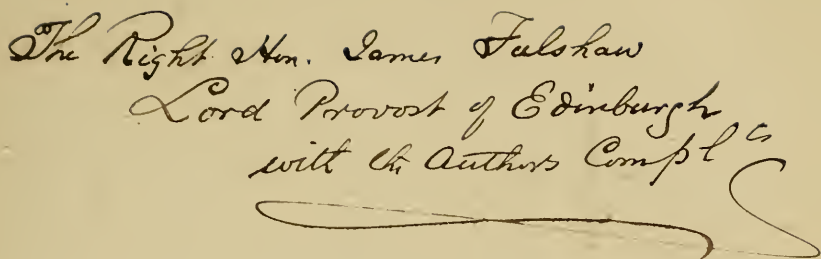 The Right Hon. James Falshaw
Lord Provost of Edinburgh
with the Authors Complts